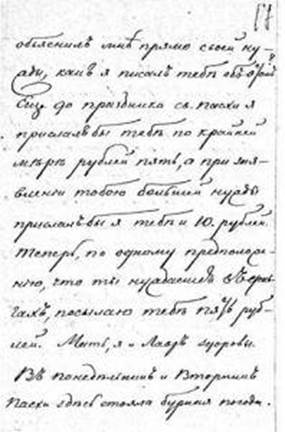 17
объяснилъ мнѣ прямо своей ну-
жды, какъ я писалъ тебѣ объ этой
Еще до праздника св. пасхи я
прислалъ бы тебѣ по крайней
мѣрѣ рублей пять, а при зая-
вленіи тобою большей нужды
прислалъ бы я тебѣ и 10. рублей.
Теперь, по одному предположе-
нію, что ты нуждаешься въ день-
гахъ, посылаю тебѣ пять руб-
лей. Мать, я и Лазарь здоровы.
Въ понедѣльникъ и Вторникъ
Пасхи здѣсь стояла бурная погода.